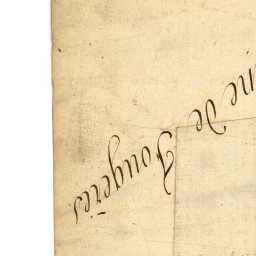 ine de Fougères